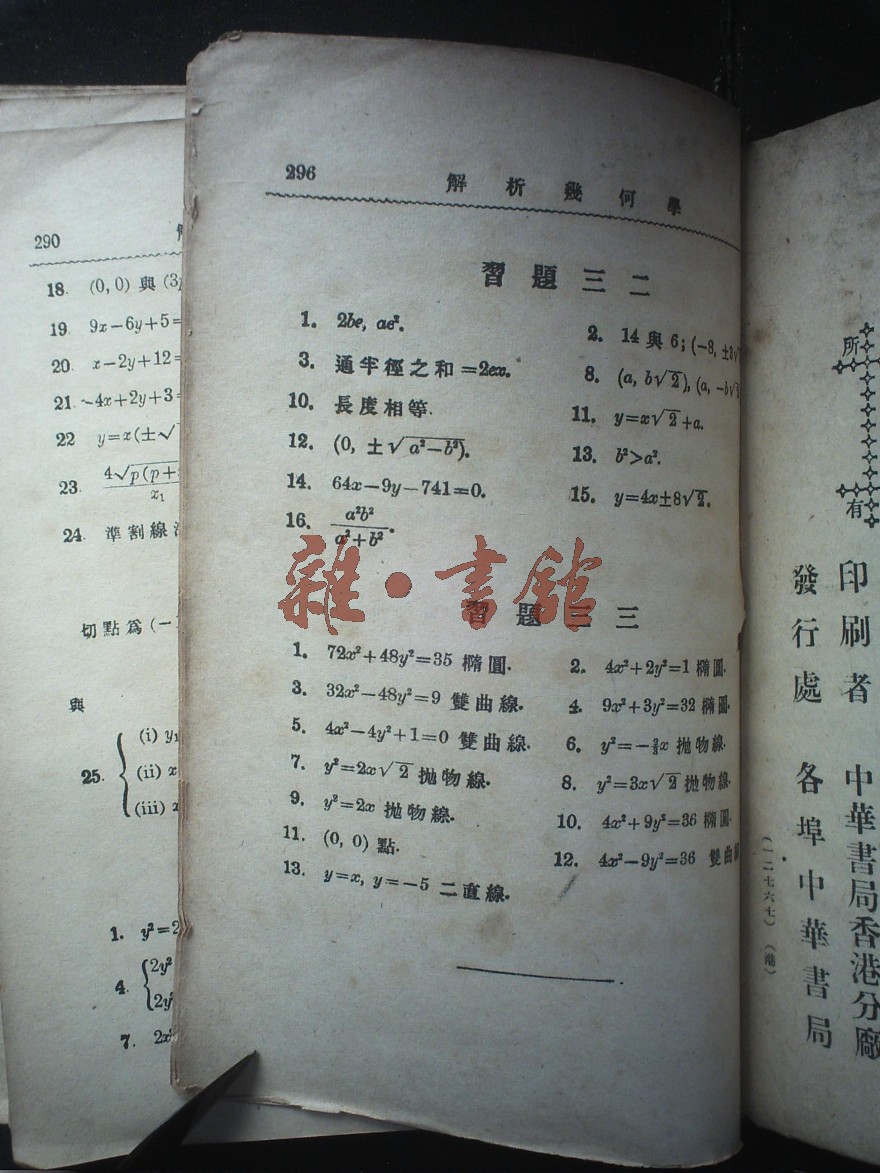 290
18. (0, 0) 與 (3
19. 9x−6y+5=
20. x−2y+12=
21. −4x+2y+3=
22 y=x(±√
23. 4√p(p+
x₁
24. 準割線
切點爲(一
與
25. (i) y₁
(ii) x
(iii) x
1. y²=2
4. 2y²
2y²
7. 2x²
296 解析幾何學
習題三二
1. 2be, ae².
2. 14 與 6; (−8, ±8√
3. 通半徑之和=2ex.
8. (a, b√2), (a, −b√2
10. 長度相等.
11. y=x√2+a.
12. (0, ±√a²−b²).
13. b²>a².
14. 64x−9y−741=0.
15. y=4x±8√2.
16. a²b²/a²+b².
雜·書館
習題三三
1. 72x²+48y²=35 橢圓.
2. 4x²+2y²=1 橢圓.
3. 32x²−48y²=9 雙曲線.
4. 9x²+3y²=32 橢圓.
5. 4x²−4y²+1=0 雙曲線.
6. y²=−x 拋物線.
7. y²=2x√2 拋物線.
8. y²=3x√2 拋物線.
9. y²=2x 拋物線.
10. 4x²+9y²=36 橢圓.
11. (0, 0) 點.
12. 4x²−9y²=36 雙曲
13. y=x, y=−5 二直線.
所
有
印刷者 中華書局香港分廠
發行處 各埠中華書局
(一二七六七)(港)